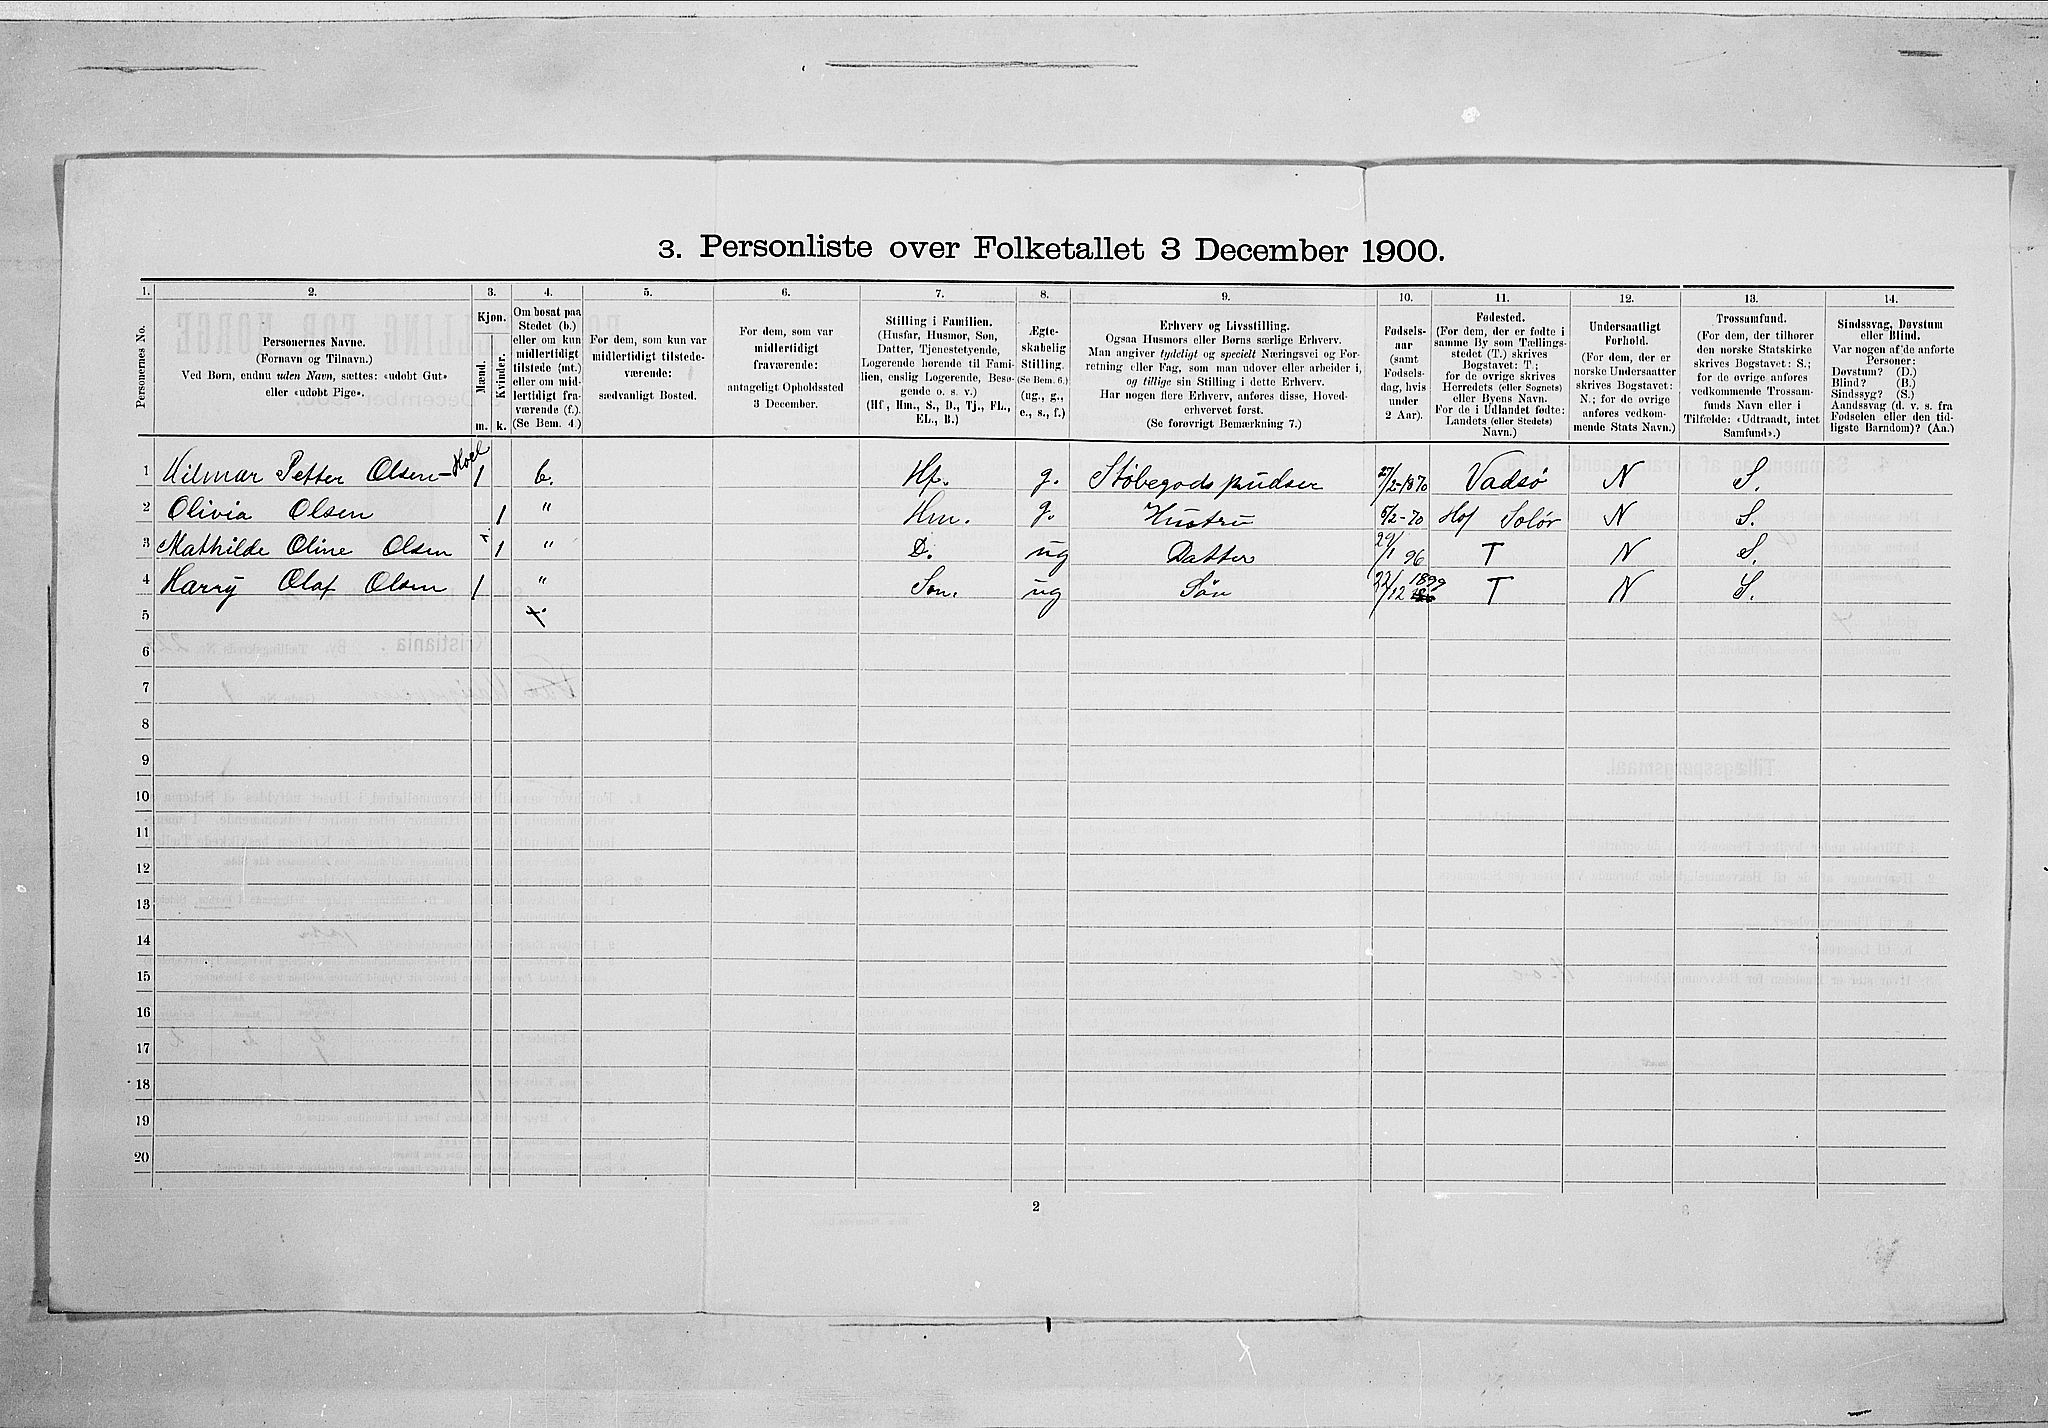 3. Personliste over Folketallet 3 December 1900.
1. 2. 3. 4. 5. 6. 7. 8. 9. 10. 11. 12. 13. 14.
Personernes No.
Personernes Navne.
(Fornavn og Tilnavn.)
Ved Børn, endnu uden Navn, sættes: «udøbt Gut»
eller «udøbt Pige».
Kjøn.
Mænd.
Kvinder.
m. k.
Om bosat paa
Stedet (b.)
eller om kun
midlertidigt
tilstede (mt.)
eller om mid-
lertidigt fra-
værende (f.)
(Se Bem. 4.)
For dem, som kun var
midlertidigt tilstede-
værende:
sædvanligt Bosted.
For dem, som var
midlertidigt
fraværende:
antageligt Opholdssted
3 December.
Stilling i Familien.
(Husfar, Husmor, Søn,
Datter, Tjenestetyende,
Logerende hørende til Fami-
lien, enslig Logerende, Besø-
gende o. s. v.)
(Hf, Hm., S., D., Tj., FL.,
EL., B.)
Ægte-
skabelig
Stilling.
(Se Bem. 6.)
(ug., g.,
e., s., f.)
Erhverv og Livsstilling.
Ogsaa Husmors eller Børns særlige Erhverv.
Man angiver tydeligt og specielt Næringsvei og For-
retning eller Fag, som man udover eller arbeider i,
og tillige sin Stilling i dette Erhverv.
Har nogen flere Erhverv, anføres disse, Hoved-
erhvervet først.
(Se forøvrigt Bemærkning 7.)
Fødsels-
aar
(samt
Fødsels-
dag, hvis
under
2 Aar).
Fødested.
(For dem, der er fødte i
samme By som Tællings-
stedet (T.) skrives
Bogstavet: T;
for de øvrige skrives
Herredets (eller Sognets)
eller Byens Navn.
For de i Udlandet fødte:
Landets (eller Stedets)
Navn.)
Undersaatligt
Forhold.
(For dem, der er
norske Undersaatter
skrives Bogstavet:
N.; for de øvrige
anføres vedkom-
mende Stats Navn.)
Trossamfund.
(For dem, der tilhører
den norske Statskirke
skrives Bogstavet: S.;
for de øvrige anføres
vedkommende Trossam-
funds Navn eller i
Tilfælde: «Udtraadt, intet
Samfund».)
Sindssvag, Døvstum
eller Blind.
Var nogen af de anførte
Personer:
Døvstum? (D.)
Blind? (B.)
Sindssyg? (S.)
Aandssvag (d. v. s. fra
Fødselen eller den tid-
ligste Barndom)? (Aa.)
1 Hilmar Petter Olsen-Hoel 1 b. Hf. g. Støbegodspudser 27/2-1870 Vadsø N S.
2 Olivia Olsen 1 " Hm. g. Hustru 5/2-70 Hof Solør N S.
3 Mathilde Oline Olsen 1 " D. ug Datter 29/1 96 T N S.
4 Harry Olaf Olsen 1 " Søn. ug Søn 22/12 1899 T N S.
5
6
7
8
9
10
11
12
13
14
15
16
17
18
19
20
2